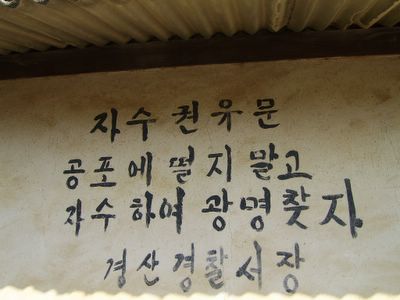 자수권유문
공포에 떨지 말고
자수하여 광명찾자
경산경찰서장